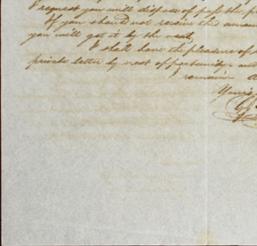 I request you will dispose of pass the p
If you should not receive this amoun
you will get it by the next,
I shall have the pleasure of
private letter by next opportunity, and
remain
Yours